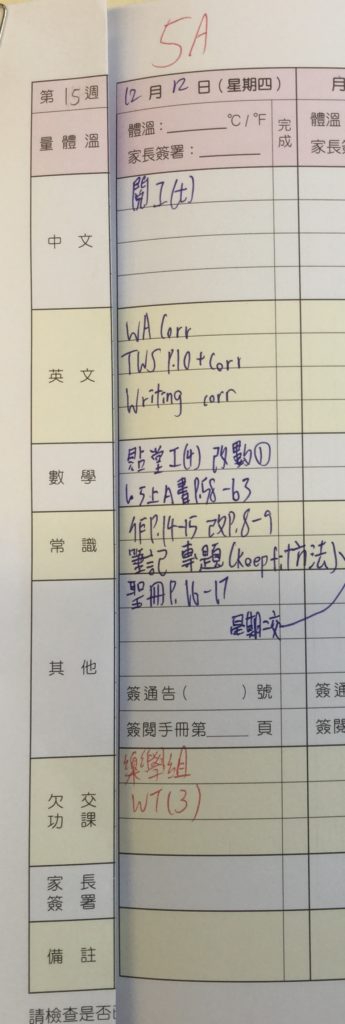 5A
第15週 12月12日(星期四) 月
量體溫 體溫:______°C/°F 完成 體溫
家長簽署:______ 家長
中文 閱工(七)
英文 WA Corr
TWS P.10 + Corr
Writing corr
數學 貼堂工(4) 改數①
5上A書P.58-63
常識 作P.14-15 改P.8-9
筆記 專題(Keep fit方法)
其他 聖冊P.16-17
星期二交
簽通告( )號 簽通
簽閱手冊第____頁 簽閱
欠交功課 樂學組
WT(3)
家長簽署
備註
請檢查是否